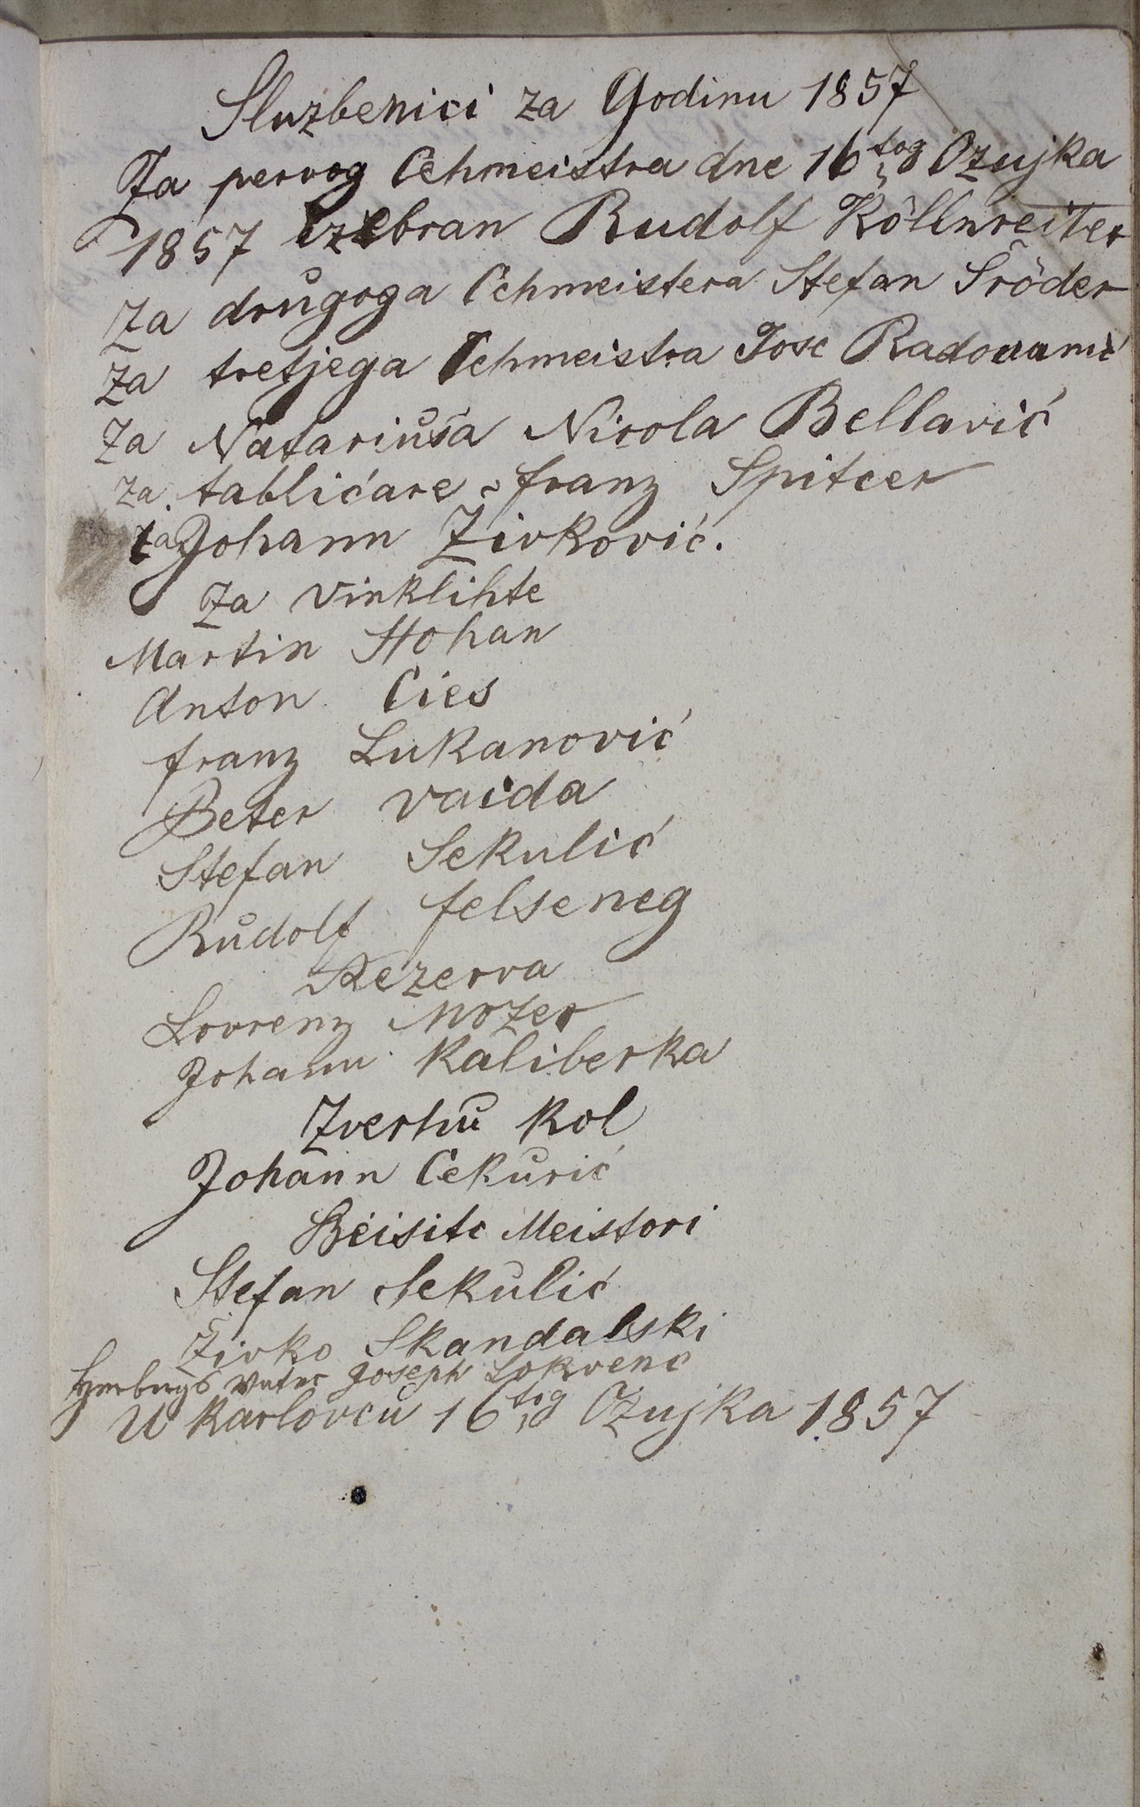 Sluzbenici za Godinu 1857
Za pervog Cehmeistra dne 16tog Ozujka
1857 izebran Rudolf Köllnreiter
Za drugoga Cehmeistera Stefan Šröder
Za tretjega Cehmeistra Jose Radovanić
Za Natariuša Nicola Bellavić
za tablićare franz Spitcer
za Johann Zivković.
Za Vinklihte
Martin Stohan
Anton Cies
franz Lukanović
Beter Vaida
Stefan Sekulić
Rudolf felseneg
Rezerva
Lovrenz Mozer
Johann Kaliberka
Zverhu kol
Johann Cekurić
Beisitc Meistori
Stefan Sekulić
Živko Skandalski
Herbergs Vater Joseph Lokvenc
U Karlovcu 16tog Ozujka 1857